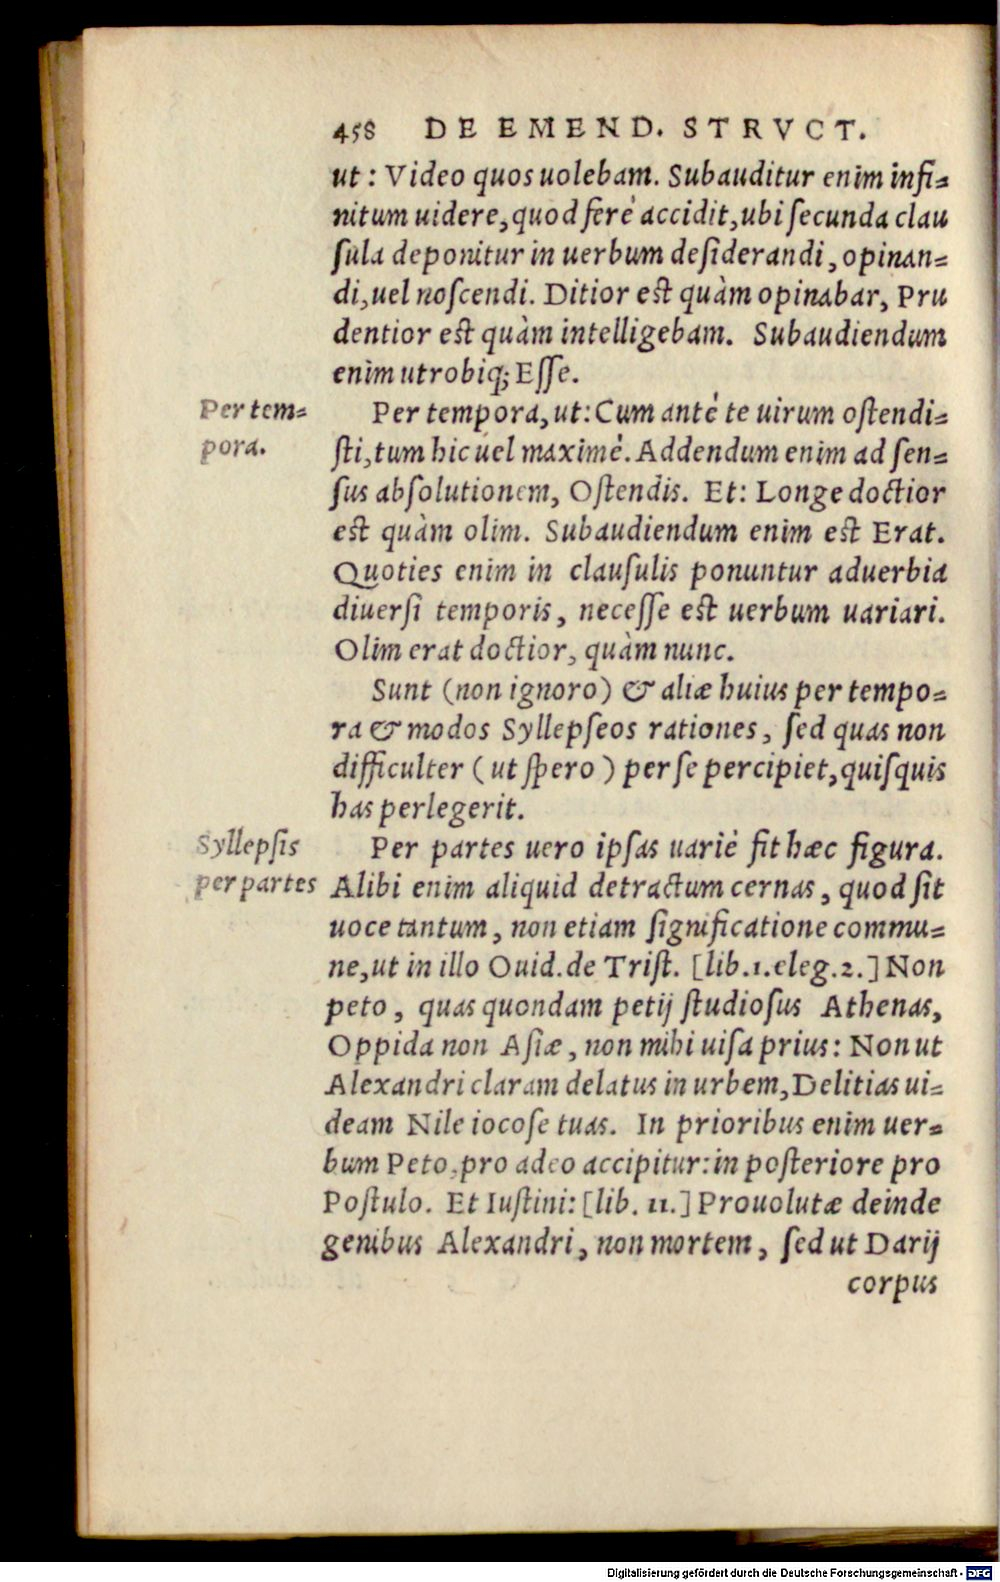 458 DE EMEND. STRVCT.
ut: Video quos uolebam. Subauditur enim infi-
nitum uidere, quod ferè accidit, ubi secunda clau
sula deponitur in uerbum desiderandi, opinan-
di, uel noscendi. Ditior est quàm opinabar, Pru
dentior est quàm intelligebam. Subaudiendum
enim utrobiq; Esse.
Per tem-
pora.
Per tempora, ut: Cum antè te uirum ostendi-
sti, tum hic uel maximè. Addendum enim ad sen-
sus absolutionem, Ostendis. Et: Longe doctior
est quàm olim. Subaudiendum enim est Erat.
Quoties enim in clausulis ponuntur aduerbia
diuersi temporis, necesse est uerbum uariari.
Olim erat doctior, quàm nunc.
Sunt (non ignoro) & aliæ huius per tempo-
ra & modos Syllepseos rationes, sed quas non
difficulter (ut spero) per se percipiet, quisquis
has perlegerit.
Syllepsis
per partes
Per partes uero ipsas uariè fit hæc figura.
Alibi enim aliquid detractum cernas, quod sit
uoce tantum, non etiam significatione commu-
ne, ut in illo Ouid. de Trist. [lib.1.eleg.2.] Non
peto, quas quondam petij studiosus Athenas,
Oppida non Asiæ, non mihi uisa prius: Non ut
Alexandri claram delatus in urbem, Delitias ui-
deam Nile iocose tuas. In prioribus enim uer-
bum Peto, pro adeo accipitur: in posteriore pro
Postulo. Et Iustini: [lib. 11.] Prouolutæ deinde
genibus Alexandri, non mortem, sed ut Darij
corpus
Digitalisierung gefördert durch die Deutsche Forschungsgemeinschaft - DFG